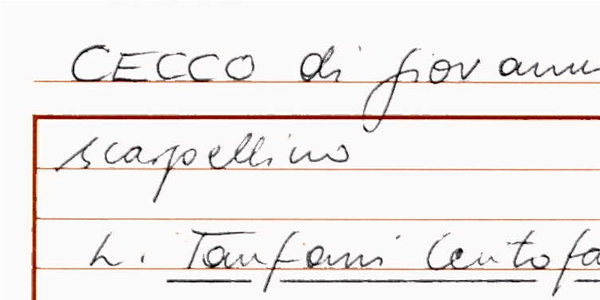 CECCO di Giovanni
scarpellino
L. Tanfani Centofa